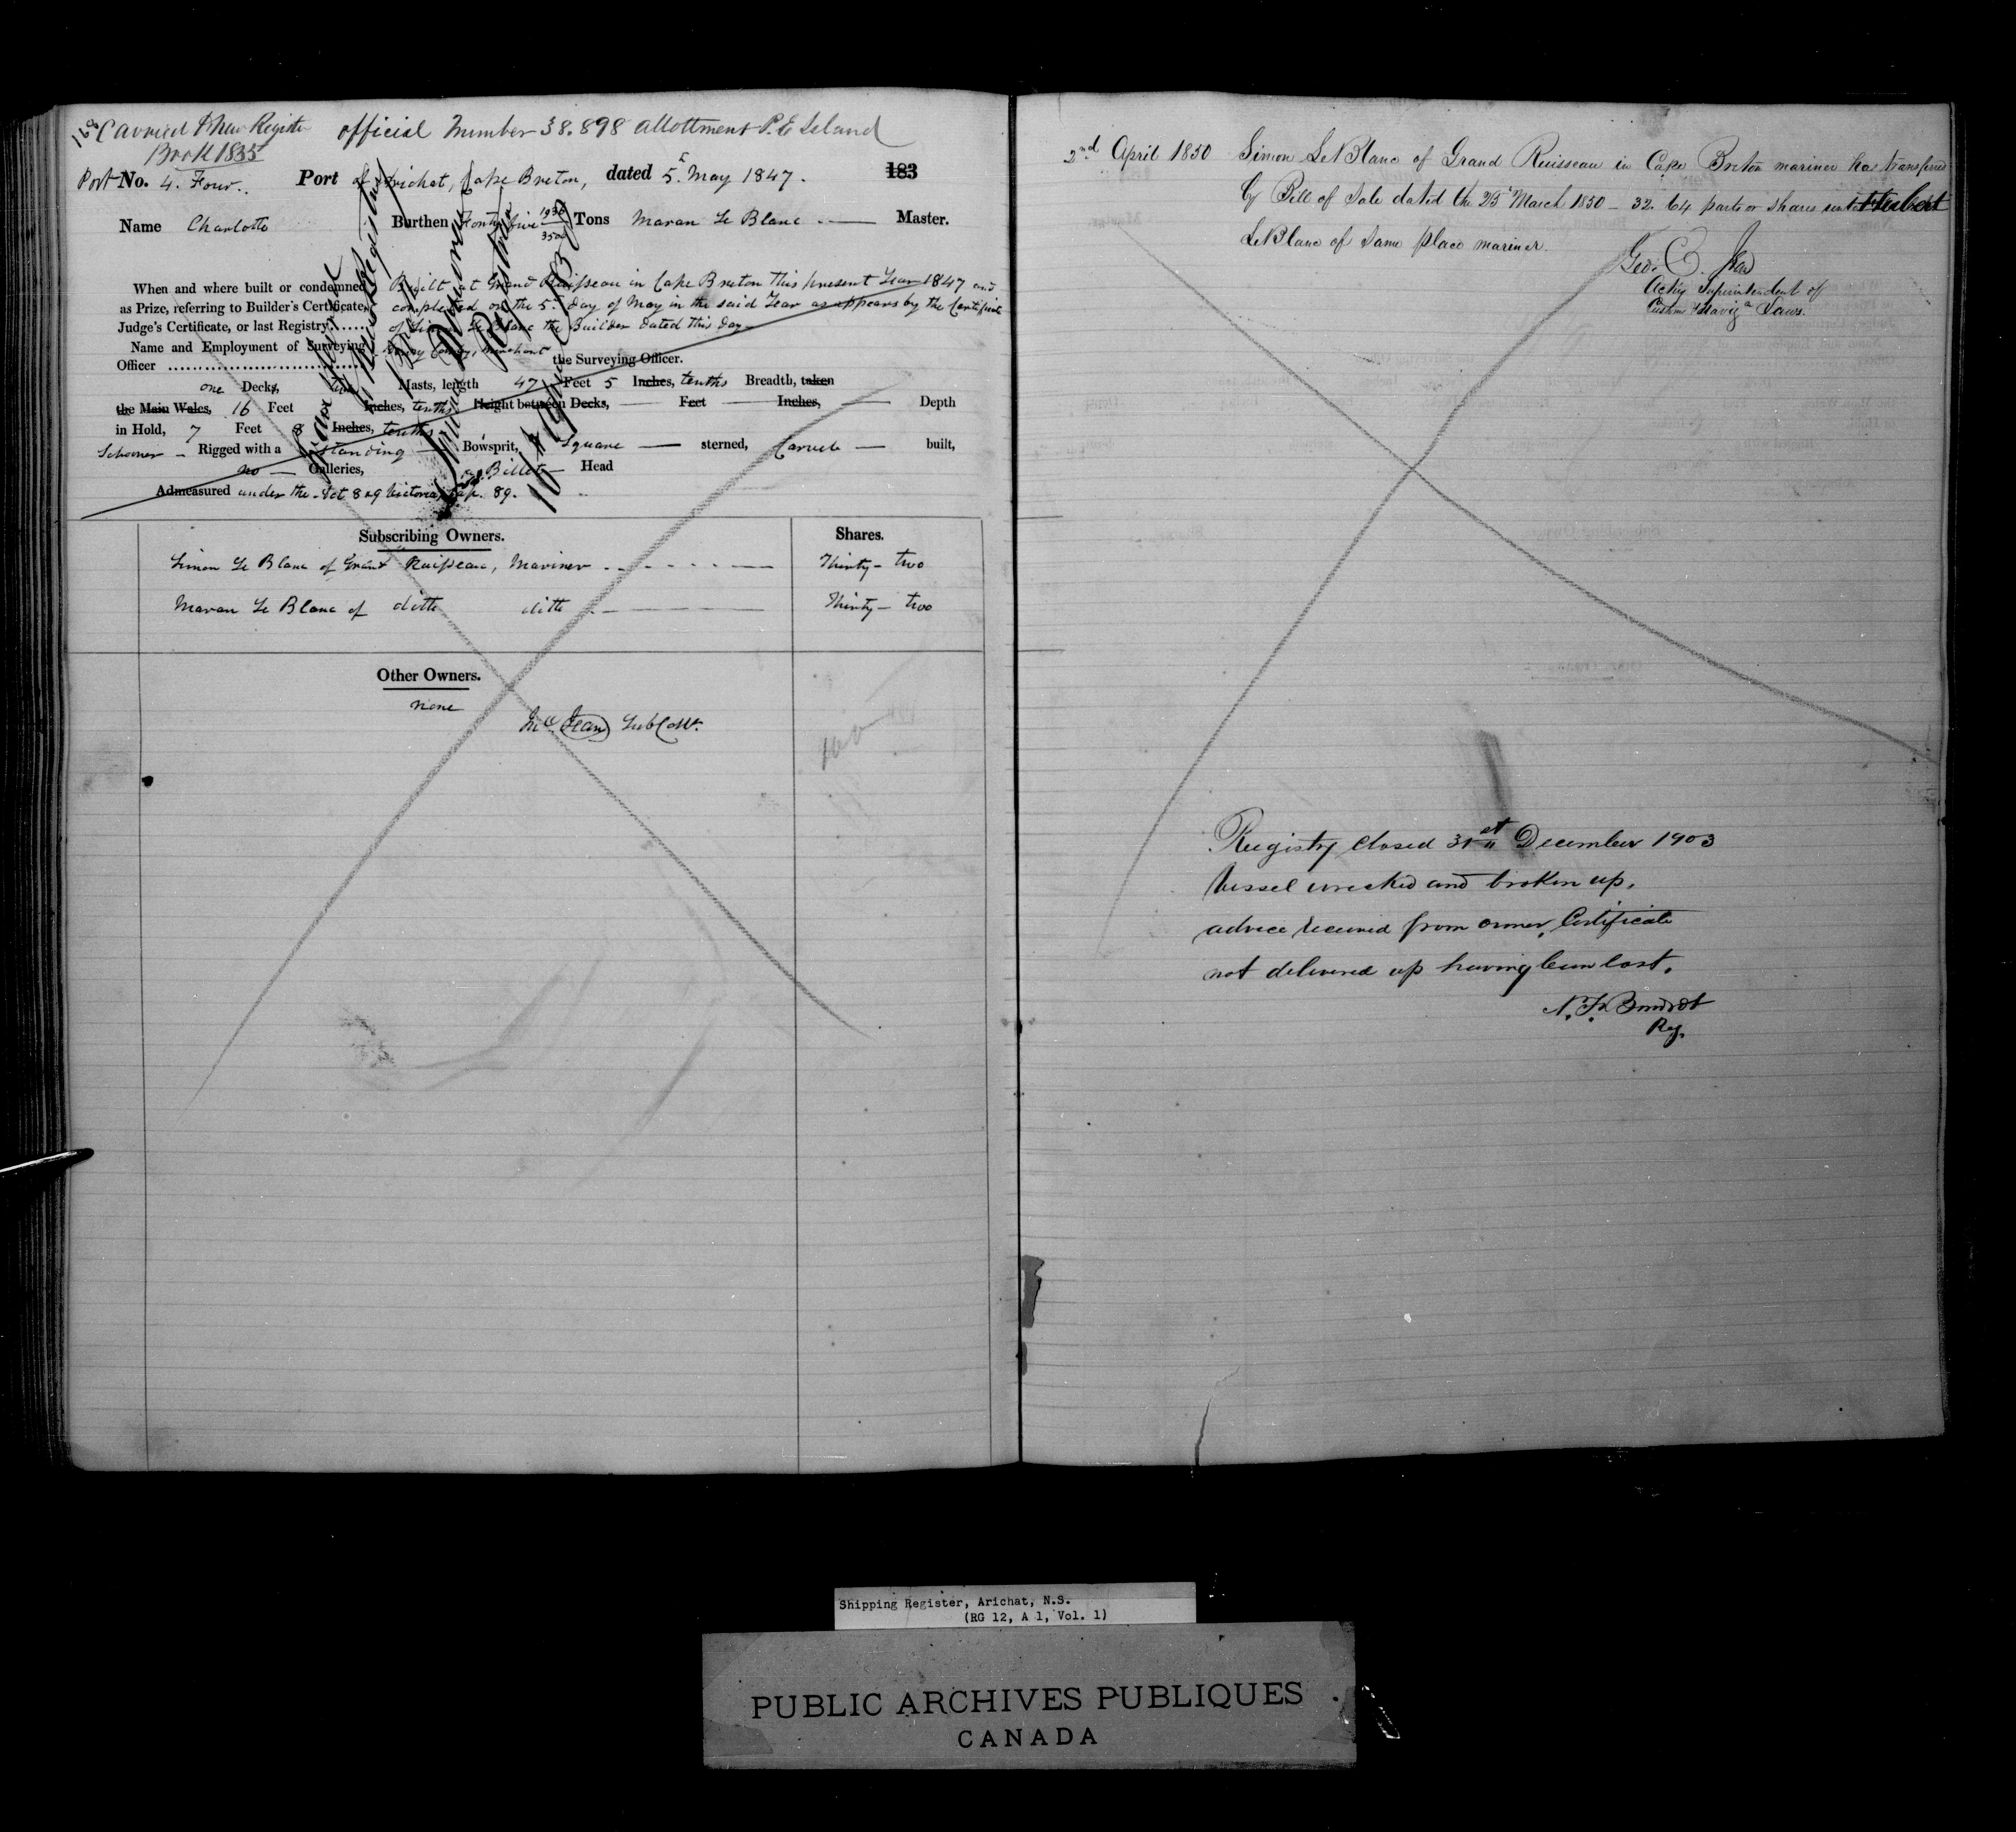 168 Carried to new Register official Number 38.898 allottment P.E Island
Book 1855
Port No. 4. Four.. Port of Arichat, Cape Breton, dated 5. May 1847. 183
Name Charlotte Burthen Forty five 1938/3500 Tons Maran Le Blanc Master.
When and where built or condemned Built at Grand Ruisseau in Cape Breton this present Year 1847 and
as Prize, referring to Builder's Certificate, completed on the 5. day of May in the said Year as appears by the Certificate
Judge's Certificate, or last Registry...... of Simon Le Blanc the Builder dated this day
Name and Employment of Surveying Merchant the Surveying Officer.
Officer
one Decks, two Masts, length 47 Feet 5 Inches, tenths Breadth, taken
the Main Wales, 16 Feet Inches, tenths Height between Decks, — Feet — Inches, — Depth
in Hold, 7 Feet 8 Inches, tenths
Schooner - Rigged with a standing Bowsprit, Square — sterned, Carvel — built,
no — Galleries, a Billet — Head
Admeasured under the Act 8 & 9 Victoria, Cap. 89.
Subscribing Owners. Shares.
Simon Le Blanc of Grand Ruisseau, Mariner Thirty - two
Maran Le Blanc of ditto ditto Thirty - two
Other Owners.
none
2nd April 1850 Simon LeBlanc of Grand Ruisseau in Cape Breton mariner has transferred
by Bill of Sale dated the 25 March 1850 - 32. 64 parts or shares unto Hubert
LeBlanc of Same place mariner.
Acting Superintendent of
Registry closed 31st December 1903
Vessel wrecked and broken up,
advice received from owner, Certificate
not delivered up having been lost.
Reg.
Shipping Register, Arichat, N.S.
(RG 12, A 1, Vol. 1)
PUBLIC ARCHIVES PUBLIQUES
CANADA